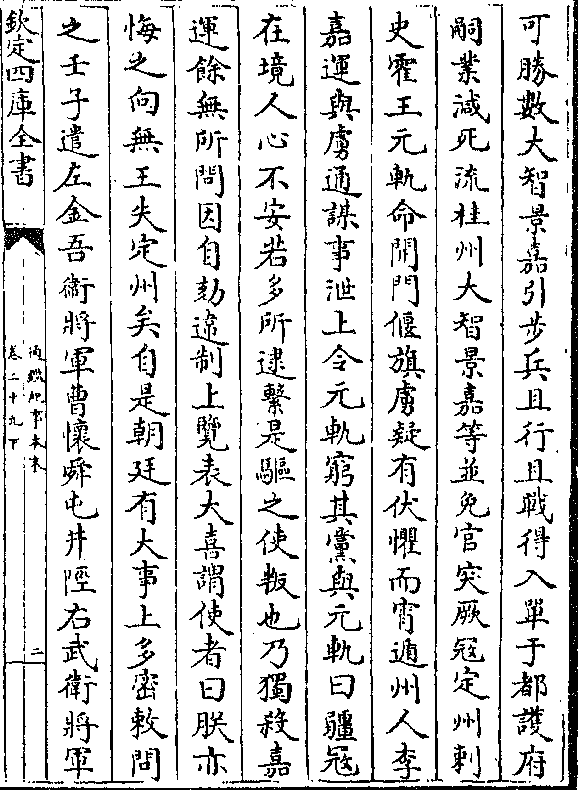 可勝數大智景嘉引步兵且行且戰得入單于都護府
嗣業減死流桂州大智景嘉等並免官突厥寇定州刺
史霍王元軌命開門偃旗虜疑有伏懼而宵遁州人李
嘉運與虜通謀事泄上令元軌窮其黨與元軌曰疆寇
在境人心不安若多所逮繫是驅之使叛也乃獨殺嘉
運餘無所問因自劾違制上覽表大喜謂使者曰朕亦
悔之向無王失定州矣自是朝廷有大事上多密敕問
之壬子遣左金吾衞將軍曹懷舜屯井陘右武衛將軍
欽定四庫全書
通鑑紀事本末
卷二十九下
二